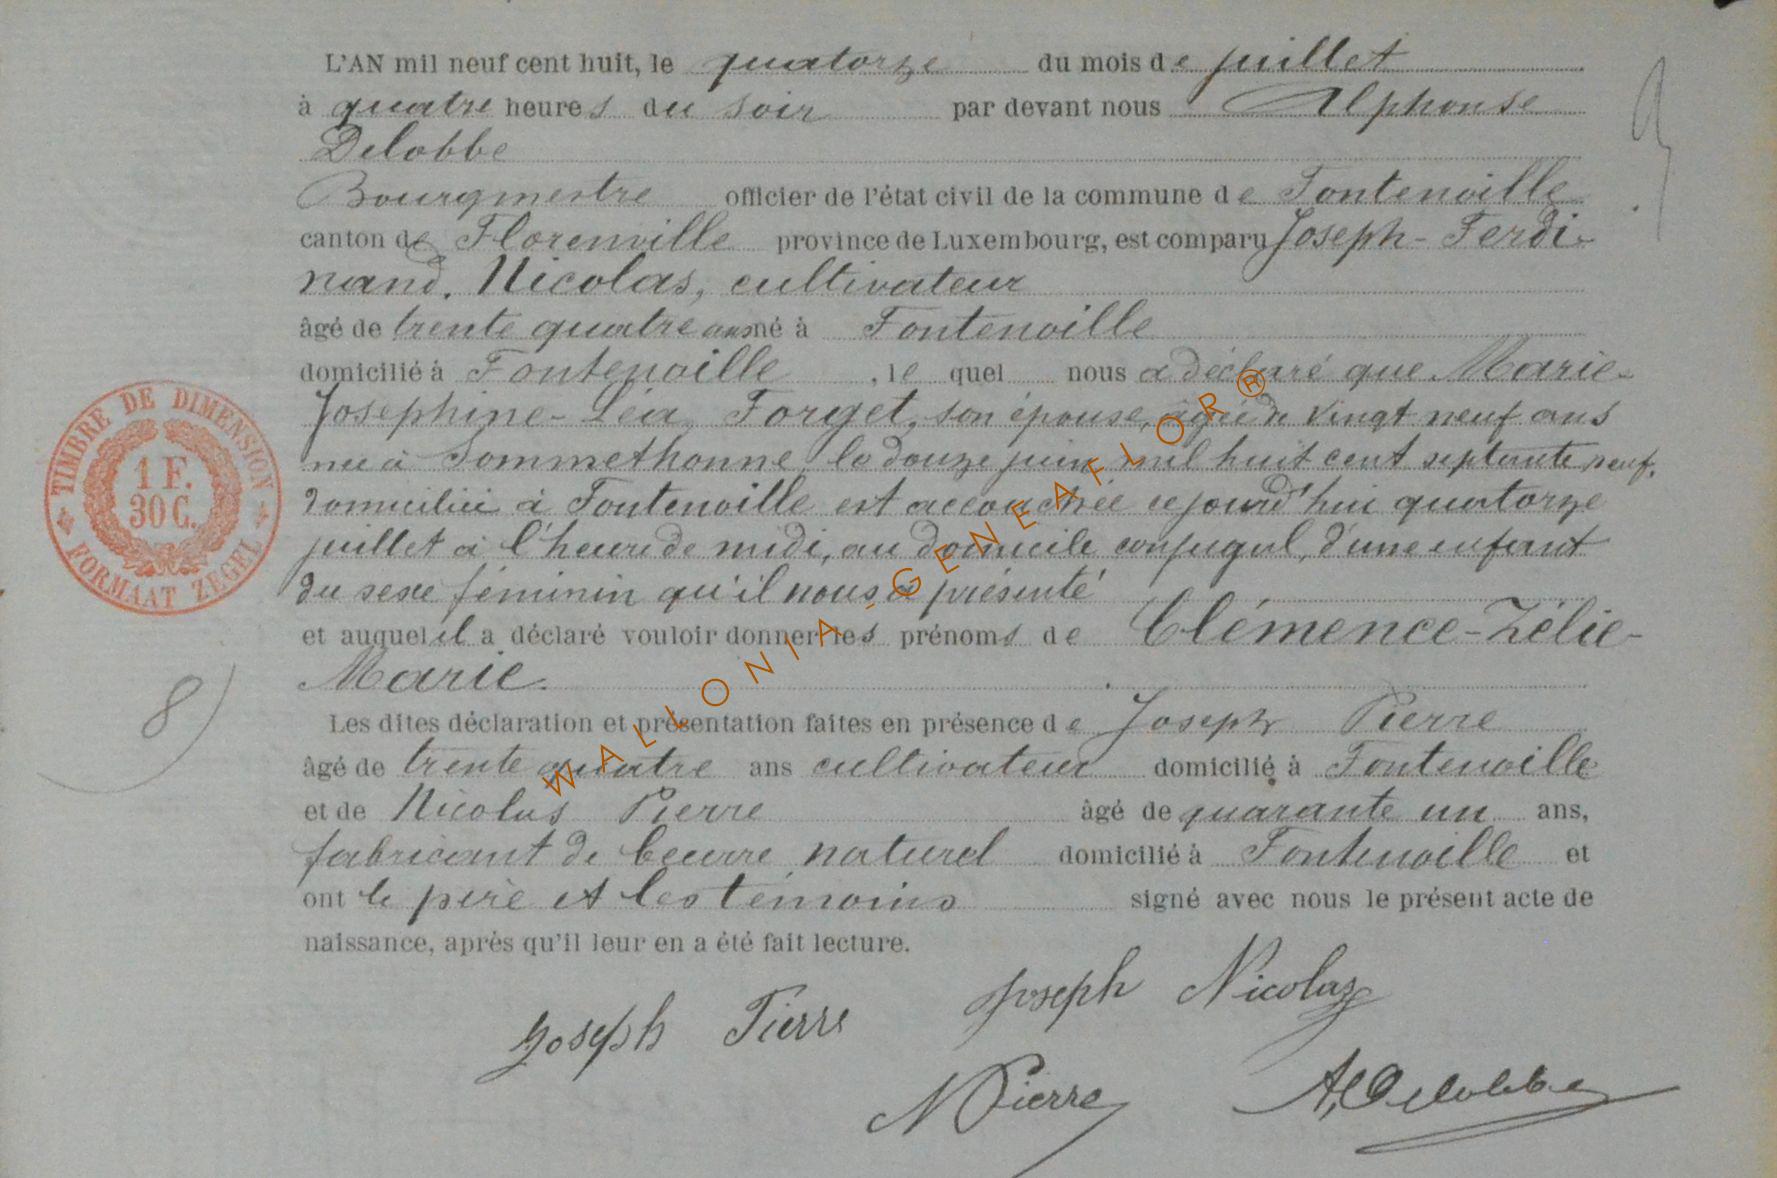 L'AN mil neuf cent huit, le quatorze du mois de juillet
à quatre heures du soir par devant nous Alphonse
Delobbe
Bourgmestre officier de l'état civil de la commune de Fontenoille
canton de Florenville province de Luxembourg, est comparu Joseph-Ferdi-
nand. Nicolas, cultivateur
âgé de trente quatre ans né à Fontenoille
domicilié à Fontenoille, lequel nous a déclaré que Marie-
Josephine-Léa, Forget, son épouse, âgée de vingt neuf ans
née à Sommethonne, le douze juin mil huit cent septante neuf.
domiciliée à Fontenoille est accouchée cejourd'hui quatorze
juillet à l'heure de midi, au domicile conjugal, d'une enfant
du sexe féminin qu'il nous a présenté
et auquel il a déclaré vouloir donner les prénoms de Clémence-Zélie-
Marie.
Les dites déclaration et présentation faites en présence de Joseph Pierre
âgé de trente quatre ans cultivateur domicilié à Fontenoille
et de Nicolas Pierre âgé de quarante un ans,
fabricant de beurre naturel domicilié à Fontenoille et
ont le père et les témoins signé avec nous le présent acte de
naissance, après qu'il leur en a été fait lecture.
Joseph Pierre Joseph Nicolas
N Pierre A. Delobbe
TIMBRE DE DIMENSION
1 F.
30 C.
FORMAAT ZEGEL
8)
WALLONIA-GENEAFLOR®